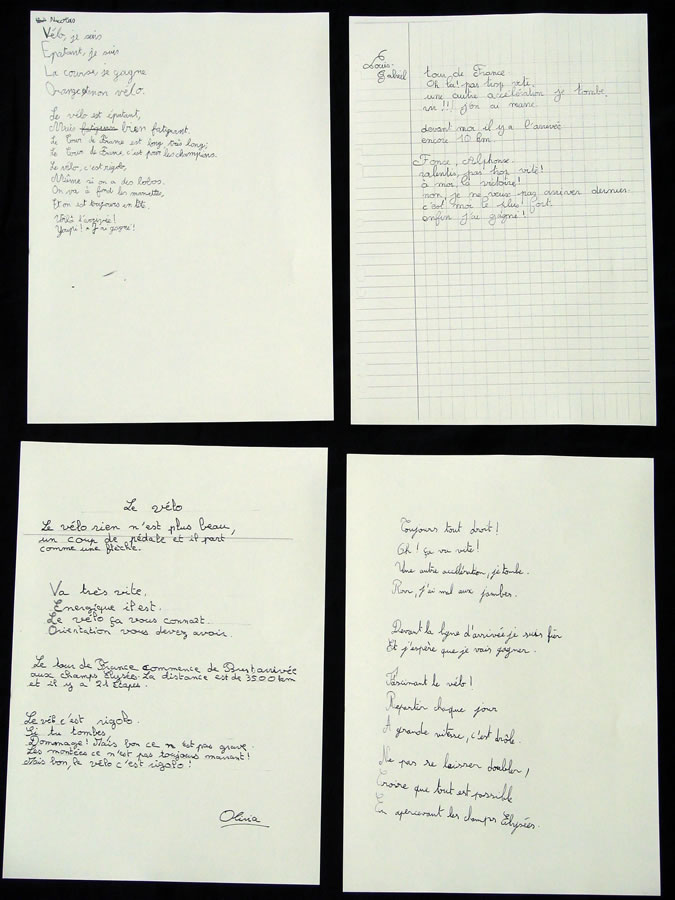 Nicolas
Vélo, je suis
Epatant, je suis
La course, je gagne
Orange, mon vélo.
Le vélo est épatant,
Mais fatiguan bien fatigant.
Le Tour de France est long, très long ;
Le Tour de France c'est pour les champions.
Le vélo, c'est rigolo,
Même si on a des bobos.
On va à fond les manettes,
Et on est toujours en tête.
Voilà l'arrivée !
Youpi ! J'ai gagné !
Louis-
Gabriel
tour de France
Oh la ! pas trop vite.
une autre accélération je tombe
!!! j'en ai marre.
devant moi il y a l'arrivée
encore 10 km
Fonse, Alphonse.
ralentis, pas trop vite !
à moi, la victoire !
non, je ne veux pas arriver dernier.
c'est moi le plus fort.
enfin j'ai gagné !
Le vélo
Le vélo rien n'est plus beau,
un coup de pédale et il part
comme une flèche.
Va très vite,
Energique il est.
Le vélo ça vous connaît.
Orientation vous devez avoir.
Le tour de France commence de Brest arrivée
aux champs Elysée. La distance est de 3500 km
et il y a 21 étapes.
Le vélo c'est rigolo.
Si tu tombes,
Dommage ! Mais bon ce n'est pas grave.
Les montées ce n'est pas toujours marrant !
Mais bon, le vélo c'est rigolo !
Olivia
Toujours tout droit !
Oh ! ça va vite !
Une autre accélération, je tombe.
Ron, j'ai mal aux jambes.
Devant la ligne d'arrivée je suis fier
Et j'espère que je vais gagner.
Fascinant le vélo !
Repartir chaque jour
A grande vitesse, c'est drôle
Ne pas se laisser doubler,
Croire que tout est possible
En apercevant les champs Elysées.